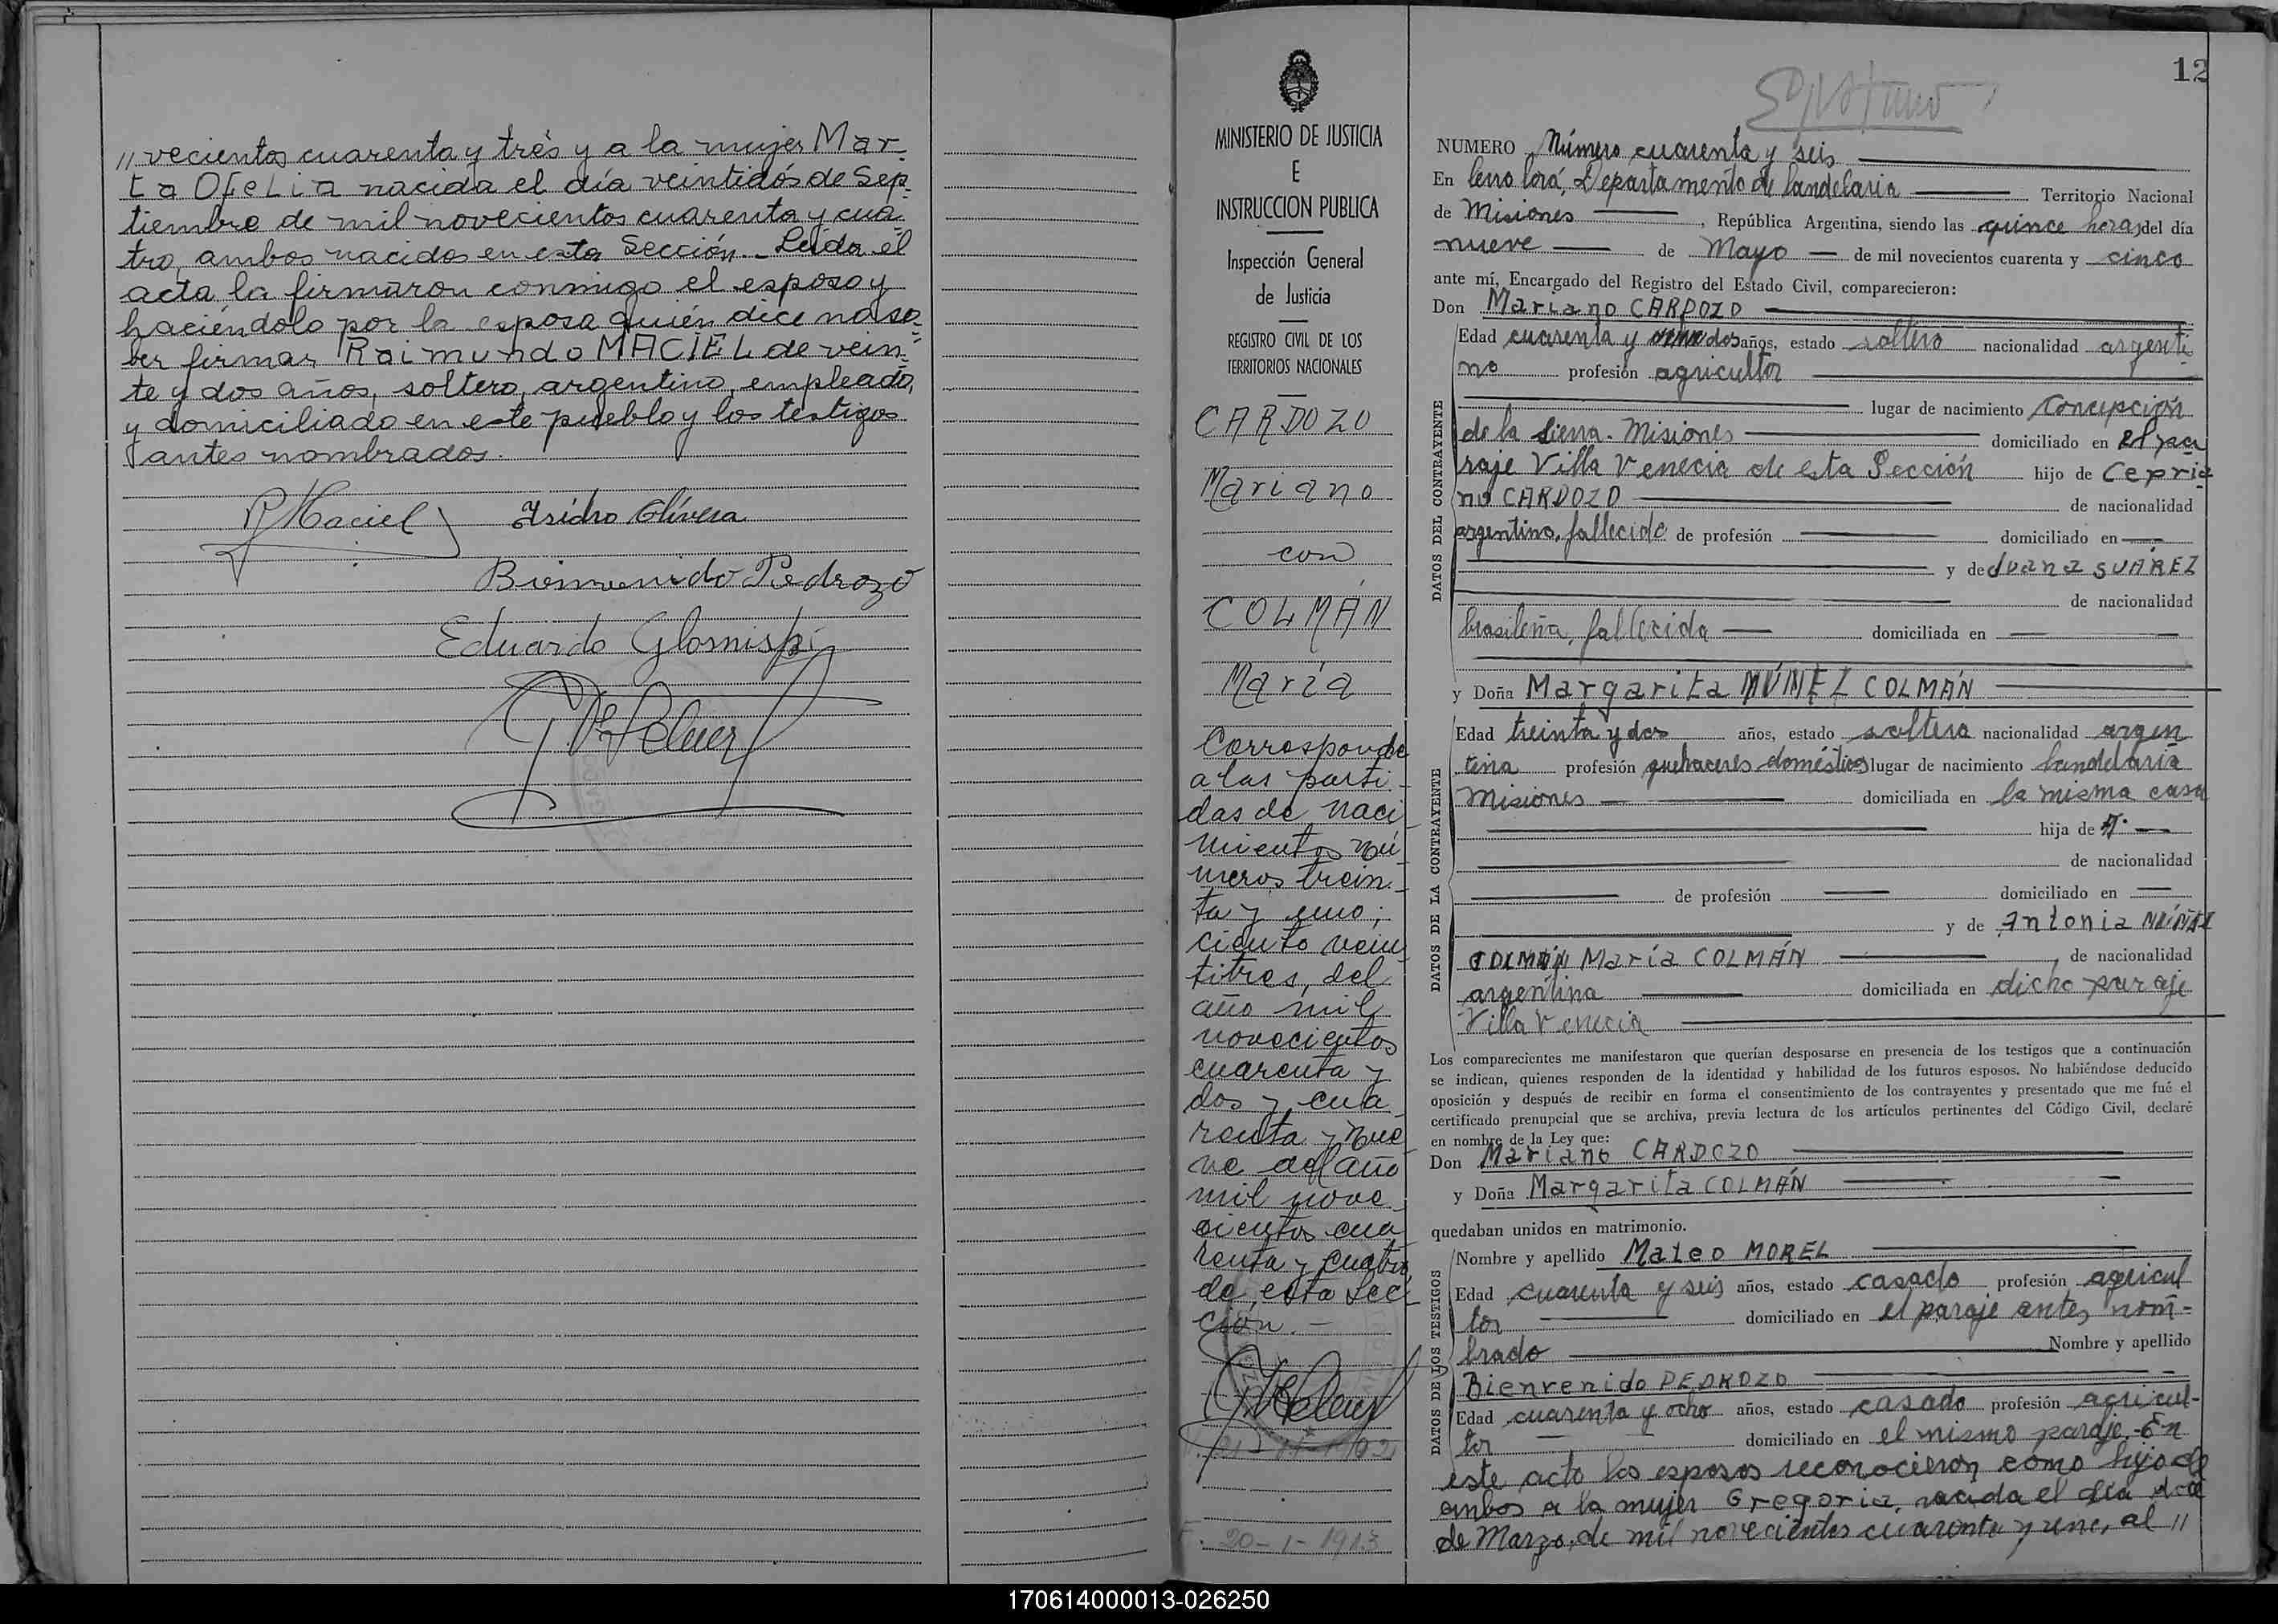 // vecientos cuarenta y très y a la mujer Mar-
ta Ofelia nacida el día veintidós de Sep-
tiembre de mil novecientos cuarenta y cua-
tro, ambos nacidos en esta Sección.- Leída el
acta, la firmaron conmigo el esposo y
haciéndolo por la esposa quién dice no sa-
ber firmar, Raimundo MACIEL de vein-
te y dos años, soltero, argentino, empleado,
y domiciliado en este pueblo y los testigos
antes nombrados.
R Maciel Isidro Olivera
Bienvenido Pedrozo
Eduardo
MINISTERIO DE JUSTICIA
E
INSTRUCCION PUBLICA
Inspección General
de Justicia
REGISTRO CIVIL DE LOS
TERRITORIOS NACIONALES
CARDOZO
Mariano
con
COLMÁN
María
Corresponde
a las parti-
das de naci-
mientos nú-
meros trein-
ta y uno;
ciento vein-
titres, del
año mil
novecientos
cuarenta y
dos y cua-
renta y nue-
ve del año
mil nove-
cientos cua-
renta y cuatro
de esta Sec-
ción.-
20-1-1913
12
NUMERO Número cuarenta y seis
En Cerro Corá, Departamento de Candelaria Territorio Nacional
de Misiones, República Argentina, siendo las quince horas del día
nueve de Mayo de mil novecientos cuarenta y cinco
ante mí, Encargado del Registro del Estado Civil, comparecieron:
Don Mariano CARDOZO
DATOS DEL CONTRAYENTE
Edad cuarenta y dos años, estado soltero nacionalidad argenti
no profesión agricultor
lugar de nacimiento Concepción
de la Sierra. Misiones domiciliado en el pa
raje Villa Venecia de esta Sección hijo de Cepria
no CARDOZO de nacionalidad
argentino, fallecido de profesión domiciliado en
y de Juana SUÁREZ
de nacionalidad
brasileña, fallecida domiciliada en
y Doña Margarita NÚÑEZ COLMÁN
DATOS DE LA CONTRAYENTE
Edad treinta y dos años, estado soltera nacionalidad argen
tina profesión quehaceres domésticos lugar de nacimiento Candelaria
Misiones domiciliada en la misma casa
hija de
de nacionalidad
de profesión domiciliado en
y de Antonia NÚÑEZ
COLMÁN María COLMÁN, de nacionalidad
argentina domiciliada en dicho paraje
Villa Venecia
Los comparecientes me manifestaron que querían desposarse en presencia de los testigos que a continuación
se indican, quienes responden de la identidad y habilidad de los futuros esposos. No habiéndose deducido
oposición y después de recibir en forma el consentimiento de los contrayentes y presentado que me fué el
certificado prenupcial que se archiva, previa lectura de los artículos pertinentes del Código Civil, declaré
en nombre de la Ley que:
Don Mariano CARDOZO
y Doña Margarita COLMÁN
quedaban unidos en matrimonio.
DATOS DE LOS TESTIGOS
Nombre y apellido Mateo MOREL
Edad cuarenta y seis años, estado casado profesión agricul
tor domiciliado en el paraje antes nom-
brado Nombre y apellido
Bienvenido PEDROZO
Edad cuarenta y ocho años, estado casado profesión agricul-
tor domiciliado en el mismo paraje.-En
este acto los esposos reconocieron como hijo de
ambos a la mujer Gregoria, nacida el día doce
de Marzo de mil novecientos cuarenta y uno, al //
170614000013-026250